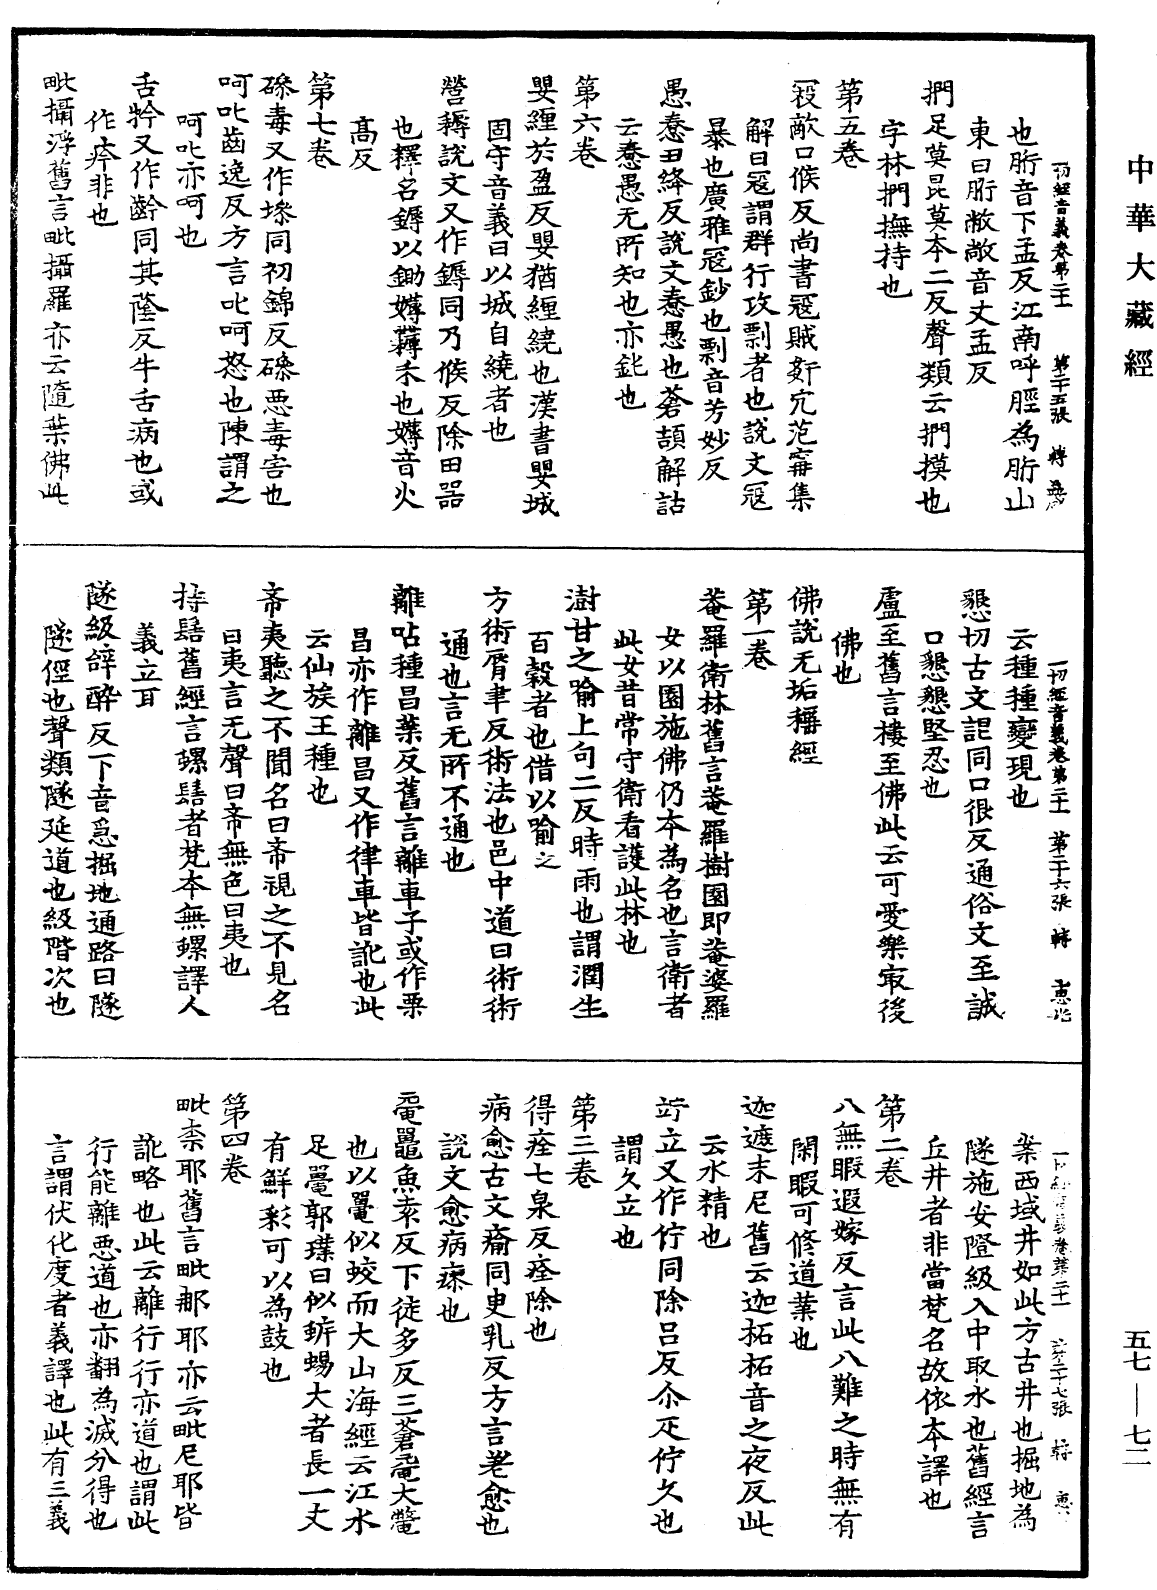 中華大藏經
一切經音義卷第二十一　第二十五張　轉
也胻音下孟反江南呼脛為胻山
東曰胻敞敞音丈孟反
捫足莫昆莫本二反聲類云捫摸也
字林捫撫持也
第五卷
㓂敵口候反尚書㓂賊姧宄范甯集
解曰㓂謂群行攻剽者也說文㓂
暴也廣雅㓂鈔也剽音芳妙反
愚惷丑絳反說文惷愚也蒼頡解詁
云惷愚无所知也亦鈍也
第六卷
嬰纏於盈反嬰猶纏繞也漢書嬰城
固守音義曰以城自繞者也
營耨說文又作鎒同乃候反除田器
也釋名鎒以鋤媷薅禾也媷音火
高反
第七卷
磣毒又作墋同初錦反磣惡毒害也
呵叱齒逸反方言叱呵怒也陳謂之
呵叱亦呵也
舌䶖又作齡同其蔭反牛舌病也或
作疥非也
毗攝浮舊言毗攝羅亦云隨葉佛此
一切經音義卷第二十一　第二十六張　轉
云種種變現也
懇切古文詪同口很反通俗文至誠
口懇懇堅忍也
盧至舊言樓至佛此云可愛樂㝡後
佛也
佛說无垢稱經
第一卷
菴羅衛林舊言菴羅樹園即菴婆羅
女以園施佛仍本為名也言衛者
此女昔常守衛看護此林也
澍甘之喻上句二反時雨也謂潤生
百穀者也借以喻之
方術脣聿反術法也邑中道曰術術
通也言无所不通也
離呫種昌葉反舊言離車子或作栗
昌亦作離昌又作律車皆訛也此
云仙族王種也
希夷聽之不聞名曰希視之不見名
曰夷言无聲曰希無色曰夷也
持髻舊經言螺髻者梵本無螺譯人
義立耳
隧級辝醉反下音急掘地通路曰隧
隧徑也聲類隧延道也級階次也
一切經音義卷第二十一　第二十七張　轉
業西域井如此方古井也掘地為
隧施安隥級入中取水也舊經言
丘井者非當梵名故依本譯也
第二卷
八無暇遐嫁反言此八難之時無有
閑暇可修道業也
迦遮末尼舊云迦柘柘音之夜反此
云水精也
竚立又作佇同除呂反尒疋佇久也
謂久立也
第三卷
得痊七泉反痊除也
病愈古文瘉同臾乳反方言差愈也
說文愈病瘳也
黿鼉魚袁反下徒多反三蒼黿大鼈
也以鼉似蛟而大山海經云江水
足鼉郭璞曰似蜥蜴大者長一丈
有鮮彩可以為鼓也
第四卷
毗柰耶舊言毗那耶亦云毗尼耶皆
訛略也此云離行行亦道也謂此
行能離惡道也亦翻為滅分得也
言謂伏化度者義譯也此有三義
五七—七二